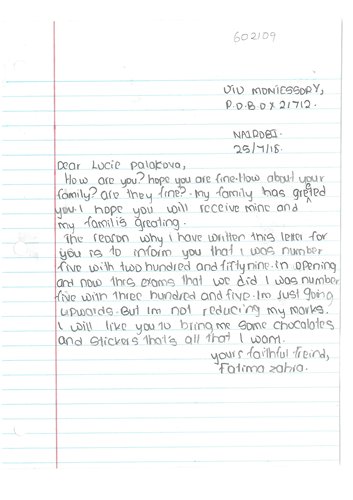 602109
VIU MONTESSORY,
P.O.BOX 21712.
NAIROBI.
25/7/18.
Dear Lucie Palakova,
How are you? hope you are fine. How about your
family? are they fine?. My family has greeted
you. I hope you will receive mine and
my familis greating.
The reason why I have written this letter for
you is to inform you that I was number
five with two hundred and fifty nine. in opening
and now this exams that we did I was number
five with three hundred and five. Im Just going
upwards. But Im not reducing my marks.
I will like you to bring me some chocolates
and stickers that's all that I want.
yours faithful freind,
Fatima Zahra.